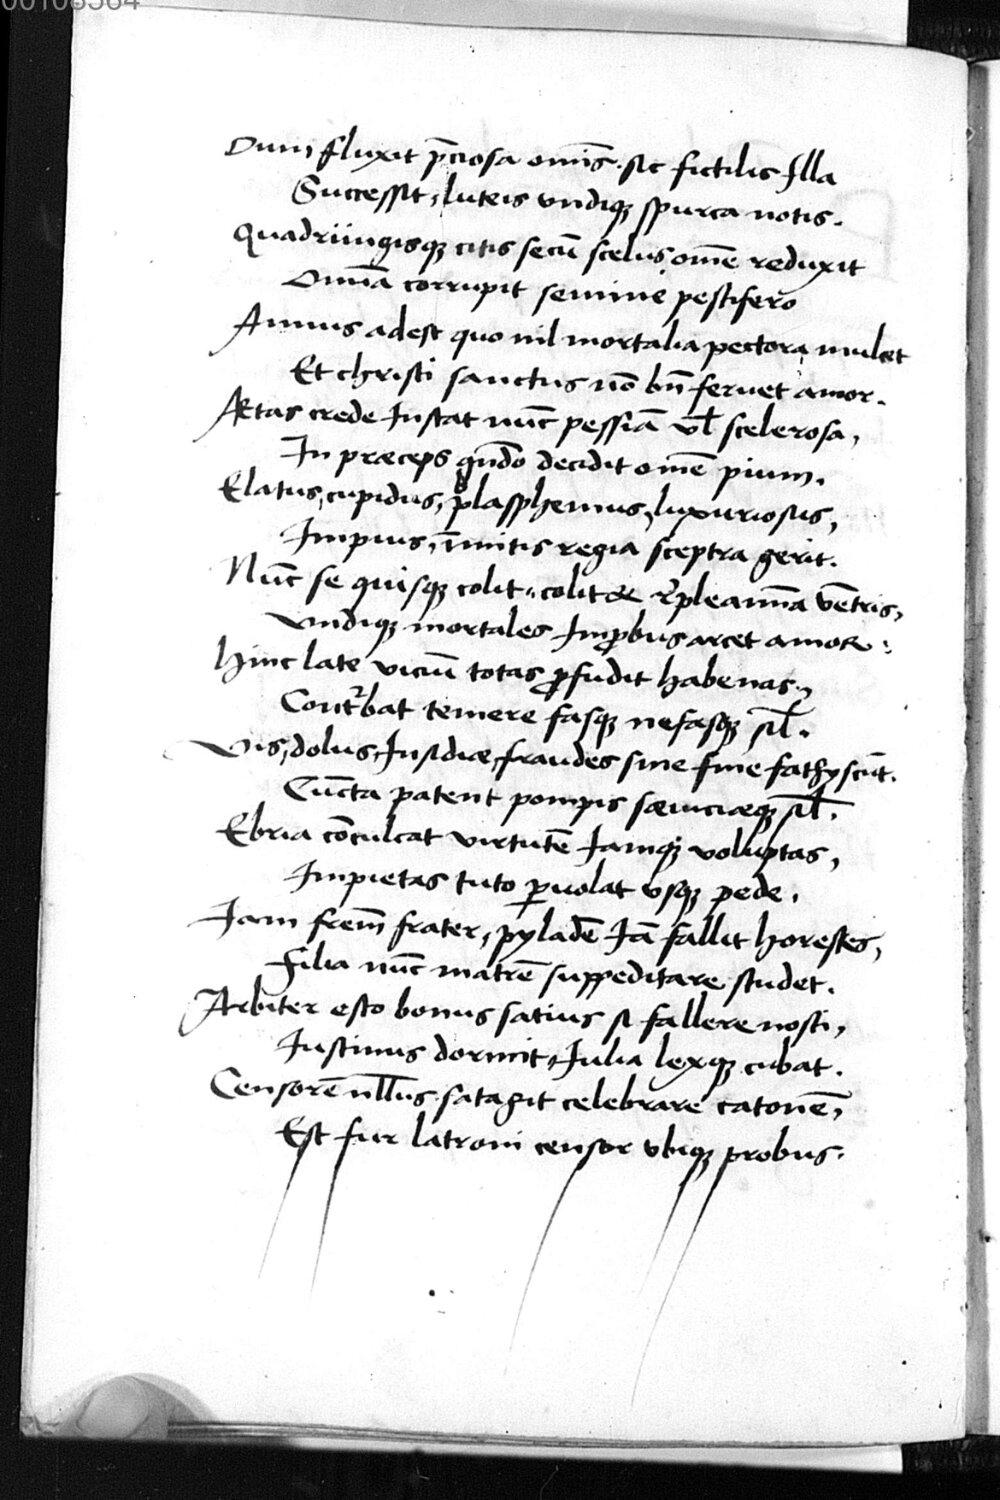 00108564
Dum fluxit p̄ciosa om̄is. sic fictilis Illa
Successit, luteis vndiq̨ spurca notis.
Quadriiugisq̨ citis secū scelus om̄e reduxit
Om̄ia corrupit semine pestifero
Annus adest quo nil mortalia pectora mulcet
Et christi sanctus nō bn̄ feruet amor.
Aetas crede Instat nūc pessīa vl̄ scelerosa,
In præceps qn̄do decidit om̄e pium.
Elatus, cupidus, blasphemus, luxuriosus,
Impius, īmitis regia sceptra gerit.
Nūc se quisq̨ colit. colit &
vndiq̨ mortales Improbus arcet amor:
Hinc late viciū totas ꝓfudit habenas,
Contᷣbat temere fasq̨ nefasq̨ sil̄.
Vis, dolus, Insidiæ, fraudes sine fine fathyscūt.
Cūcta patent pompis sæuiciæq̨ sil̄.
Ebria cōculcat virtutē Iamq̨ voluptas,
Impietas tuto ꝑuolat vsq̨ pede,
Iam frēm frater, pyladē Iā fallit horestes,
Filia nūc matrē suppeditare studet.
Arbiter esto bonus satius si fallere nosti,
Iustinus dormit, Iulia lexq̨ cubat.
Censorē nl̄lus satagit celebrare catonē,
Est fur latroni censor vbiq̨ probus.